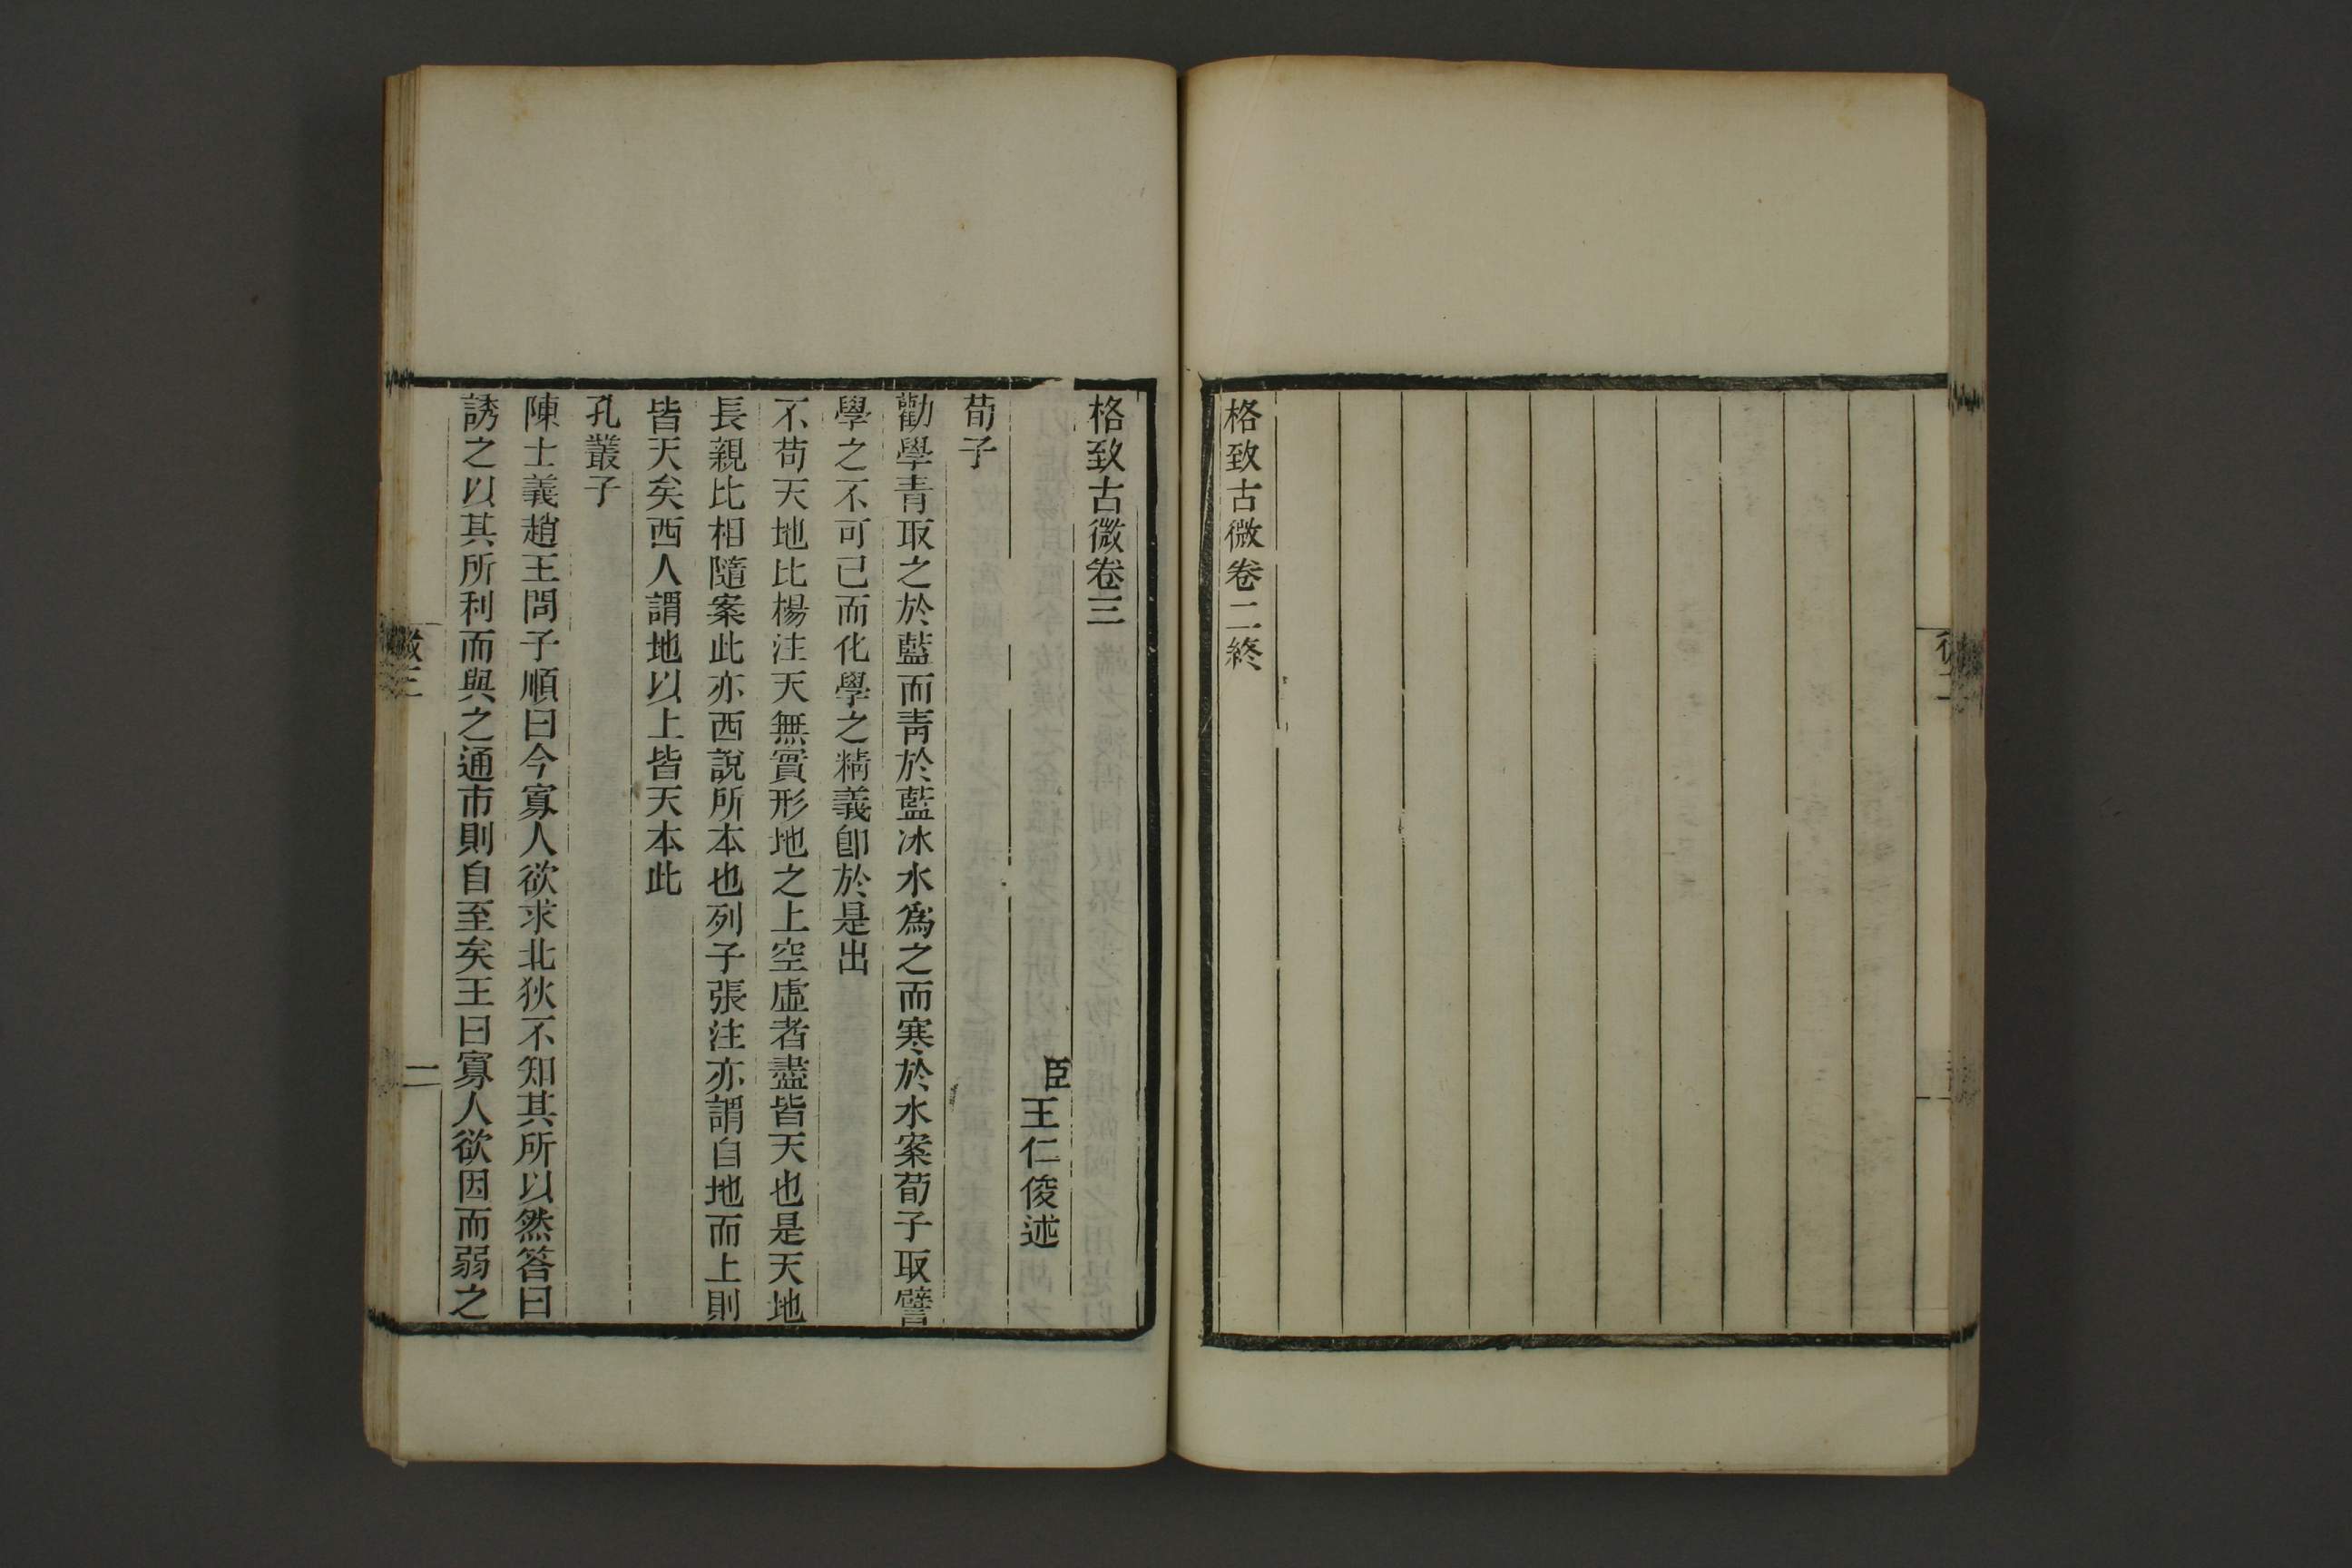 格致古微卷二終
格致古微卷三
臣王仁俊述
荀子
勸學青取之於藍而青於藍冰水爲之而寒於水案荀子取譬
學之不可已而化學之精義卽於是出
不苟天地比楊注天無實形地之上空虛者盡皆天也是天地
長親比相隨案此亦西說所本也列子張注亦謂自地而上則
皆天矣西人謂地以上皆天本此
孔叢子
陳士義趙王問子順曰今寡人欲求北狄不知其所以然答曰
誘之以其所利而與之通市則自至矣王曰寡人欲因而弱之
微三